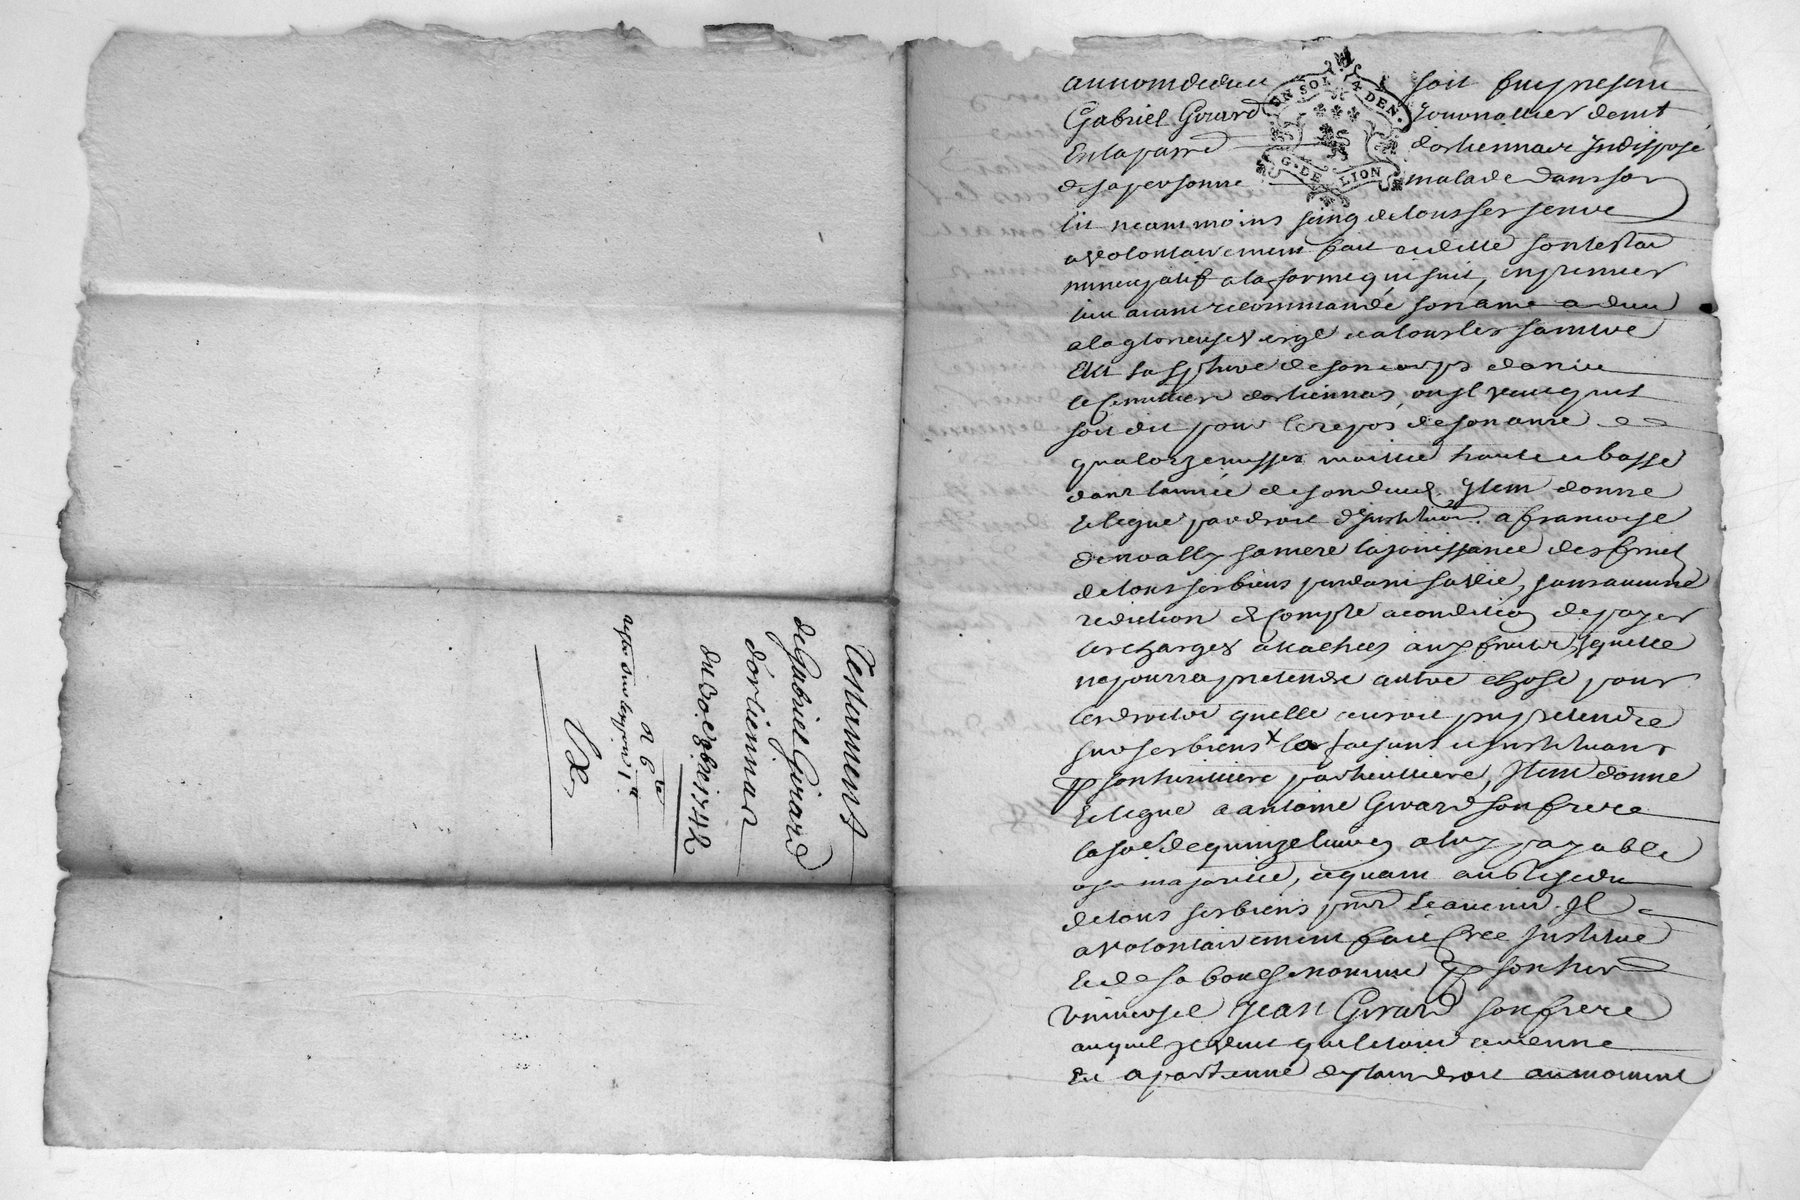 Testament
de Gabriel Girard
d'orliennas
du 30e 7bre 1742
au nom de dieu soit fut present
Gabriel Girard Journallier demt
En la parre d'orliennas Indisposé
de sa personne malade dans son
lit neammoins seing de tous ses sens
a volontairement fait et dicté son testat
nuncupatif a la forme qui suit, en premier
lieu aiant recommandé son ame a dieu
a la glorieuse vierge et a tous les saints
Elit sa sepulture de son corps dans
le cemittiere d'orliennas, ou Il veut quil
soit dit pour le repos de son ame
quatorze messes moittié haute et basse
dans l'année de son deces. Item donne
et legue par droit d'Institution a francoise
sa mere la jouissance des fruits
de tous ses biens pendant sa vie, sans aucune
rediction de compte a condition de payer
les charges attachées aux fruits, & quelle
ne pourra pretendre autre chose pour
les droits quelle auroit pu pretendre
sur ses biens x la faisant et Instituant
p son heritiere particulliere, Item donne
et legue a antoine Girard son frere
la soe de quinze livres a luy payable
a sa majorité, et quant au Residu
de tous ses biens pnts et avenir Il
a volontairement fait Cree Institué
et de sa bouche nommé p son her
universel Jean Girard son frere
auquel Il veut que le tout avienne
Et apartienne de plain droit au moment
G. DE LION
UN SOL 4 DEN.